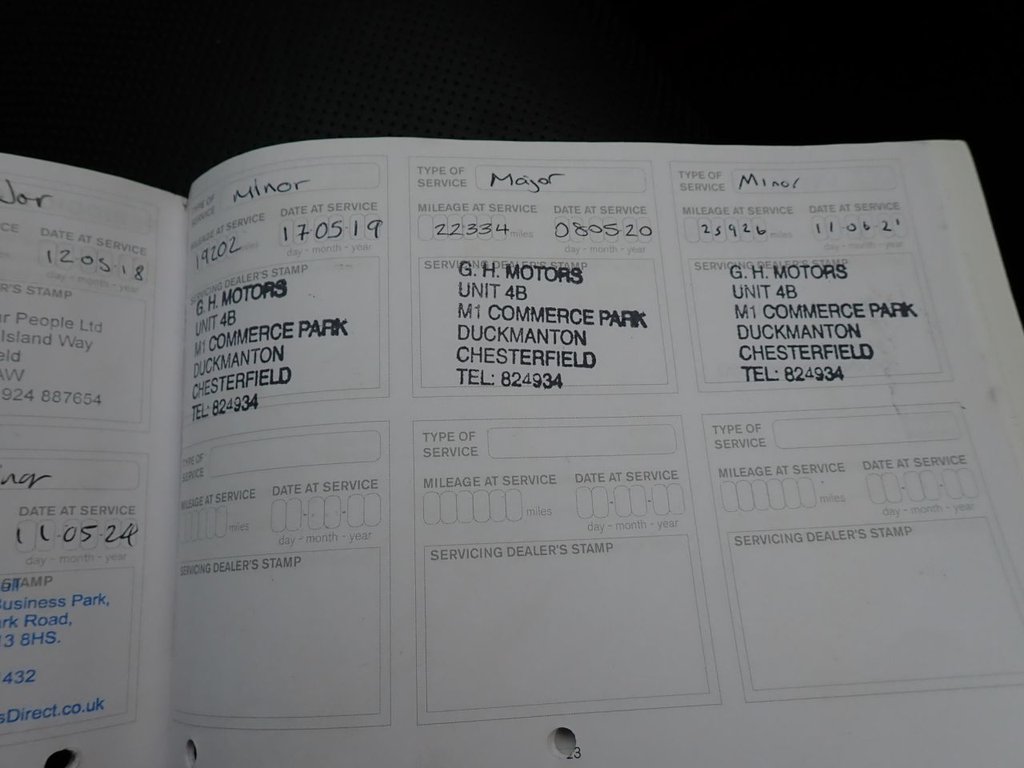 DATE AT SERVICE
12 05 18
day - month - year
STAMP
People Ltd
Island Way
924 887654
DATE AT SERVICE
11-05-24
day - month - year
STAMP
Business Park,
Road,
8HS.
432
sDirect.co.uk
TYPE OF
SERVICE
Minor
MILEAGE AT SERVICE
19202 miles
DATE AT SERVICE
17 05 19
SERVICING DEALER'S STAMP
G. H. MOTORS
UNIT 4B
M1 COMMERCE PARK
DUCKMANTON
CHESTERFIELD
TEL: 824934
TYPE OF
SERVICE
Major
MILEAGE AT SERVICE
22334 miles
DATE AT SERVICE
080520
day - month - year
SERVICING DEALER'S STAMP
G. H. MOTORS
UNIT 4B
M1 COMMERCE PARK
DUCKMANTON
CHESTERFIELD
TEL: 824934
TYPE OF
SERVICE
Minor
MILEAGE AT SERVICE
25926 miles
DATE AT SERVICE
11 06 21
day - month - year
SERVICING DEALER'S STAMP
G. H. MOTORS
UNIT 4B
M1 COMMERCE PARK
DUCKMANTON
CHESTERFIELD
TEL: 824934
TYPE OF
SERVICE
MILEAGE AT SERVICE
miles
DATE AT SERVICE
day - month - year
SERVICING DEALER'S STAMP
TYPE OF
SERVICE
MILEAGE AT SERVICE
miles
DATE AT SERVICE
day - month - year
SERVICING DEALER'S STAMP
TYPE OF
SERVICE
MILEAGE AT SERVICE
miles
DATE AT SERVICE
day - month - year
SERVICING DEALER'S STAMP